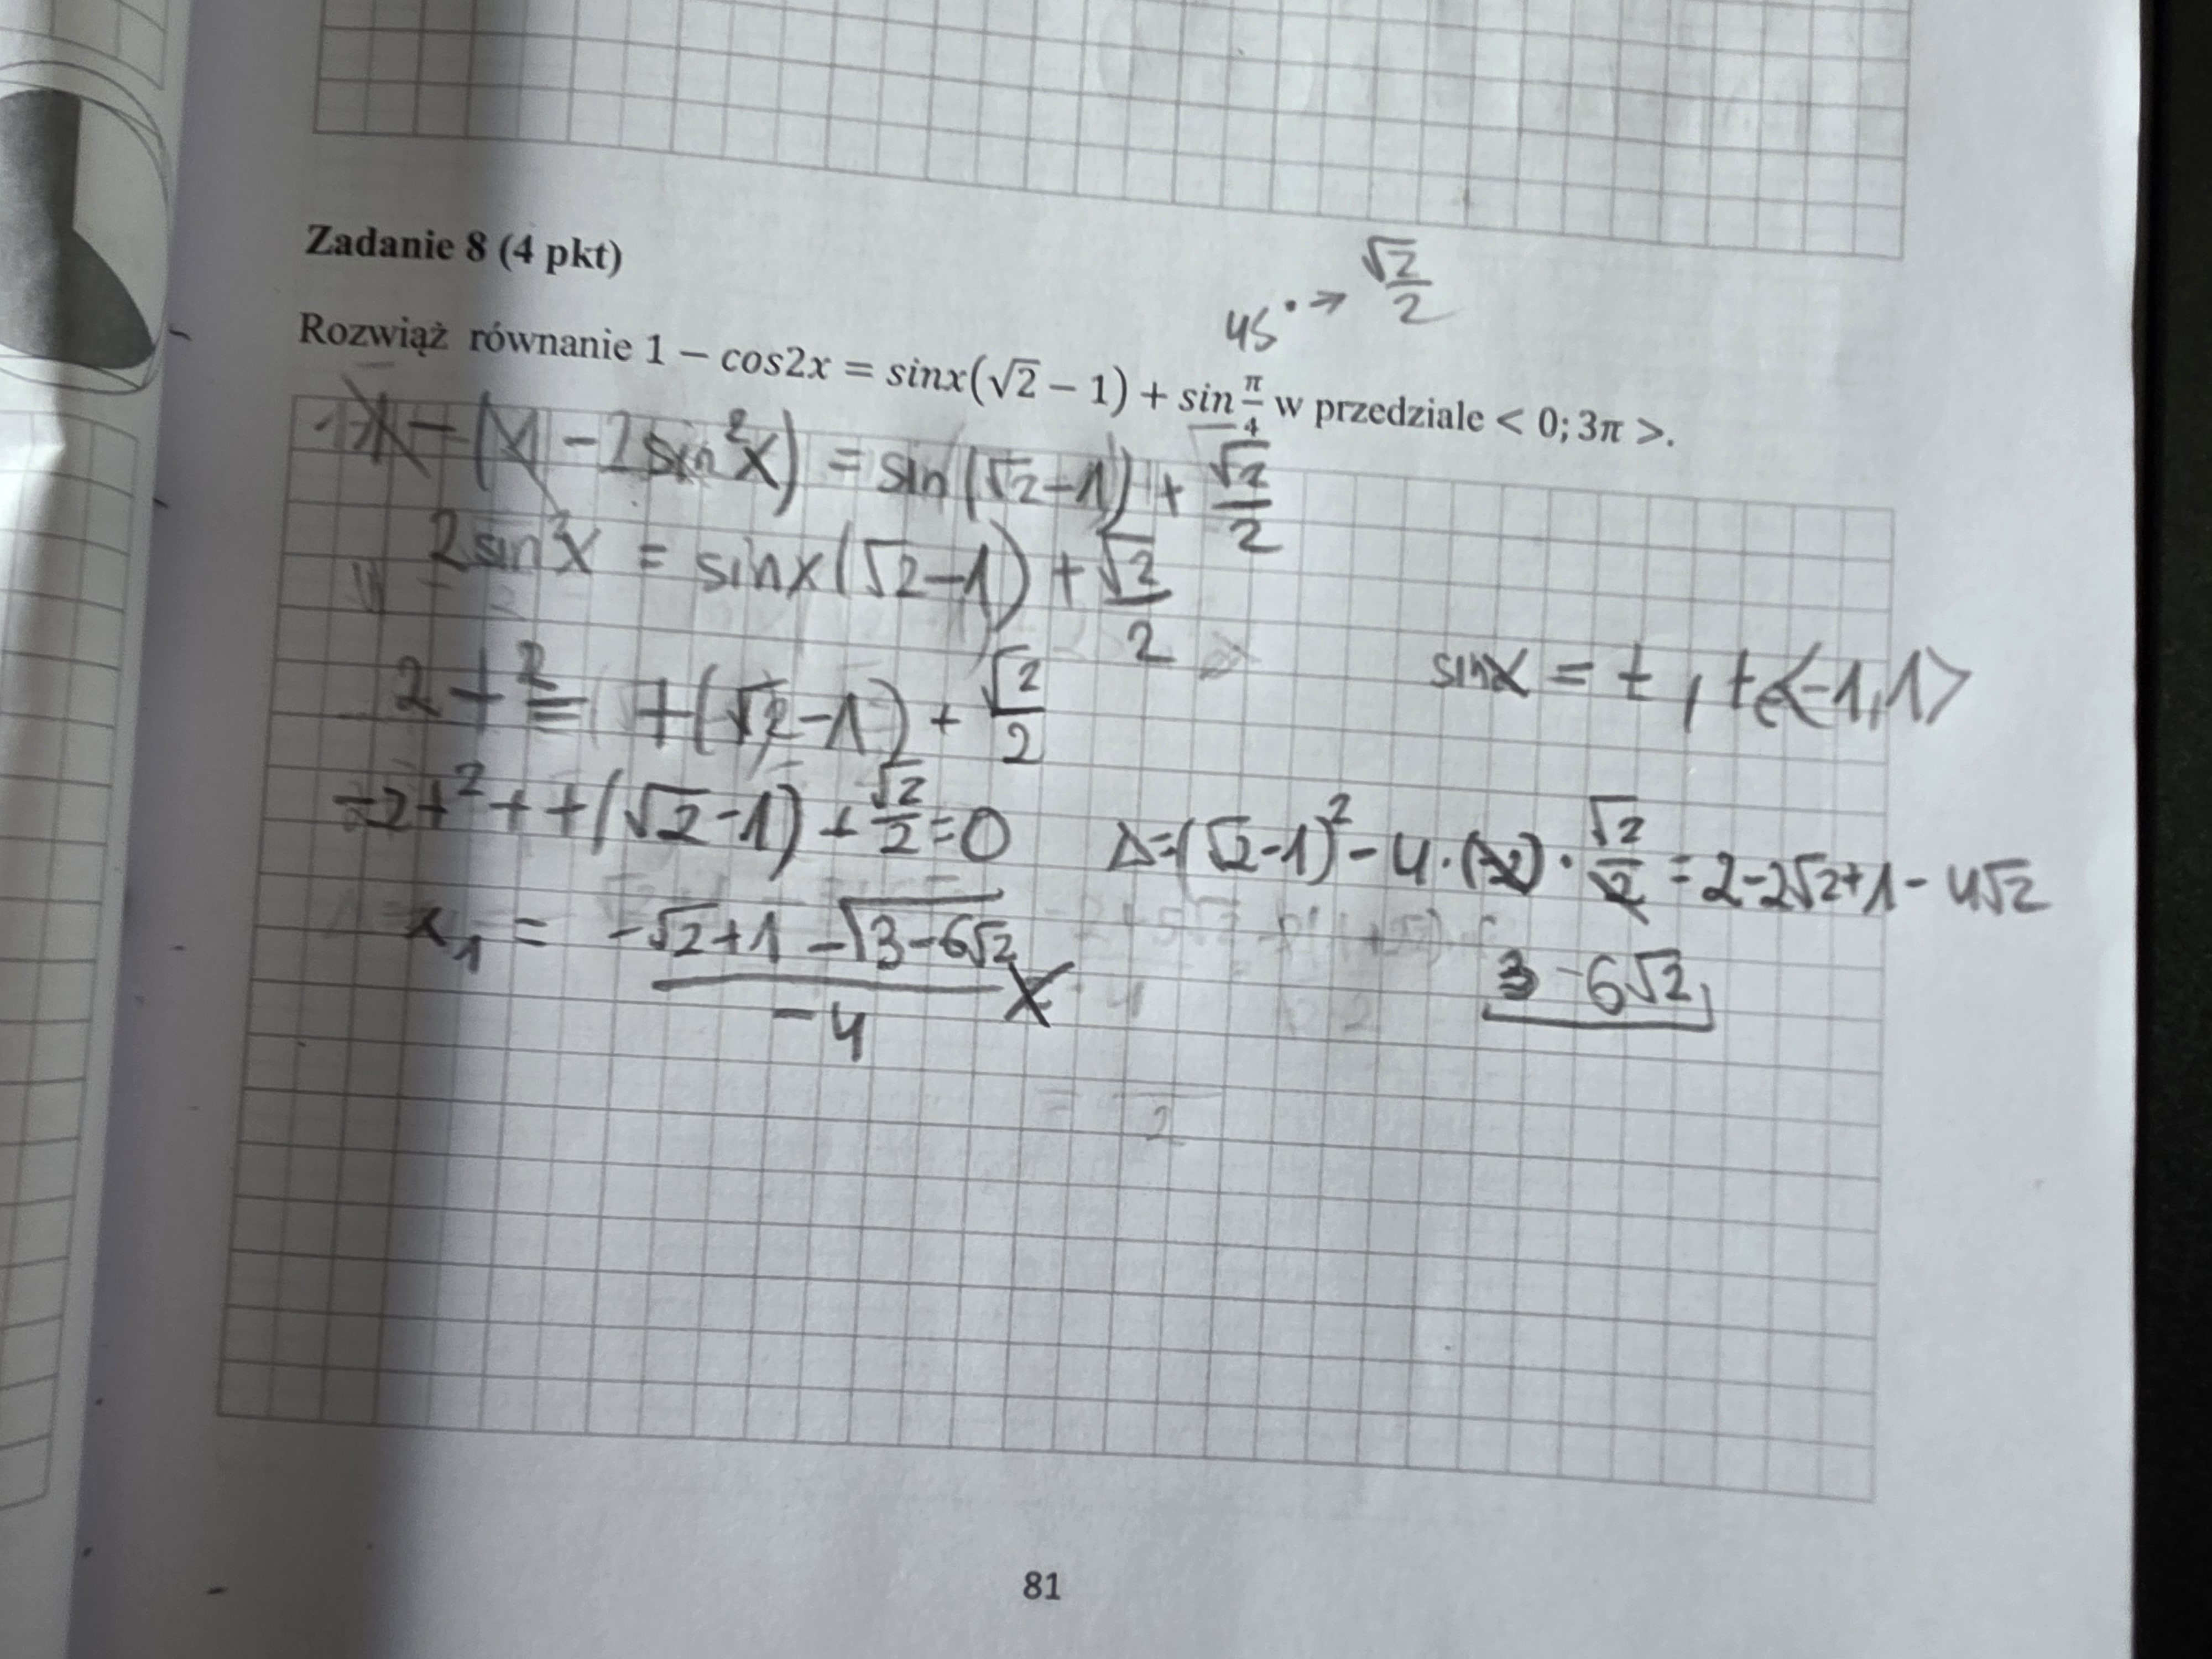 Zadanie 8 (4 pkt)
45° → √2/2
Rozwiąż równanie 1 − cos2x = sinx(√2 − 1) + sin π/4 w przedziale < 0; 3π >.
1 − (1 − 2sin²x) = sin(√2−1) + √2/2
2sin²x = sinx(√2−1) + √2/2
sinx = t, t∈<−1,1>
2t² = t(√2−1) + √2/2
−2t² + t(√2−1) + √2/2 = 0
Δ=(√2−1)² − 4·(−2)·√2/2 = 2−2√2+1− 4√2
3 −6√2
x₁ = −√2+1 −√3−6√2 / −4
81